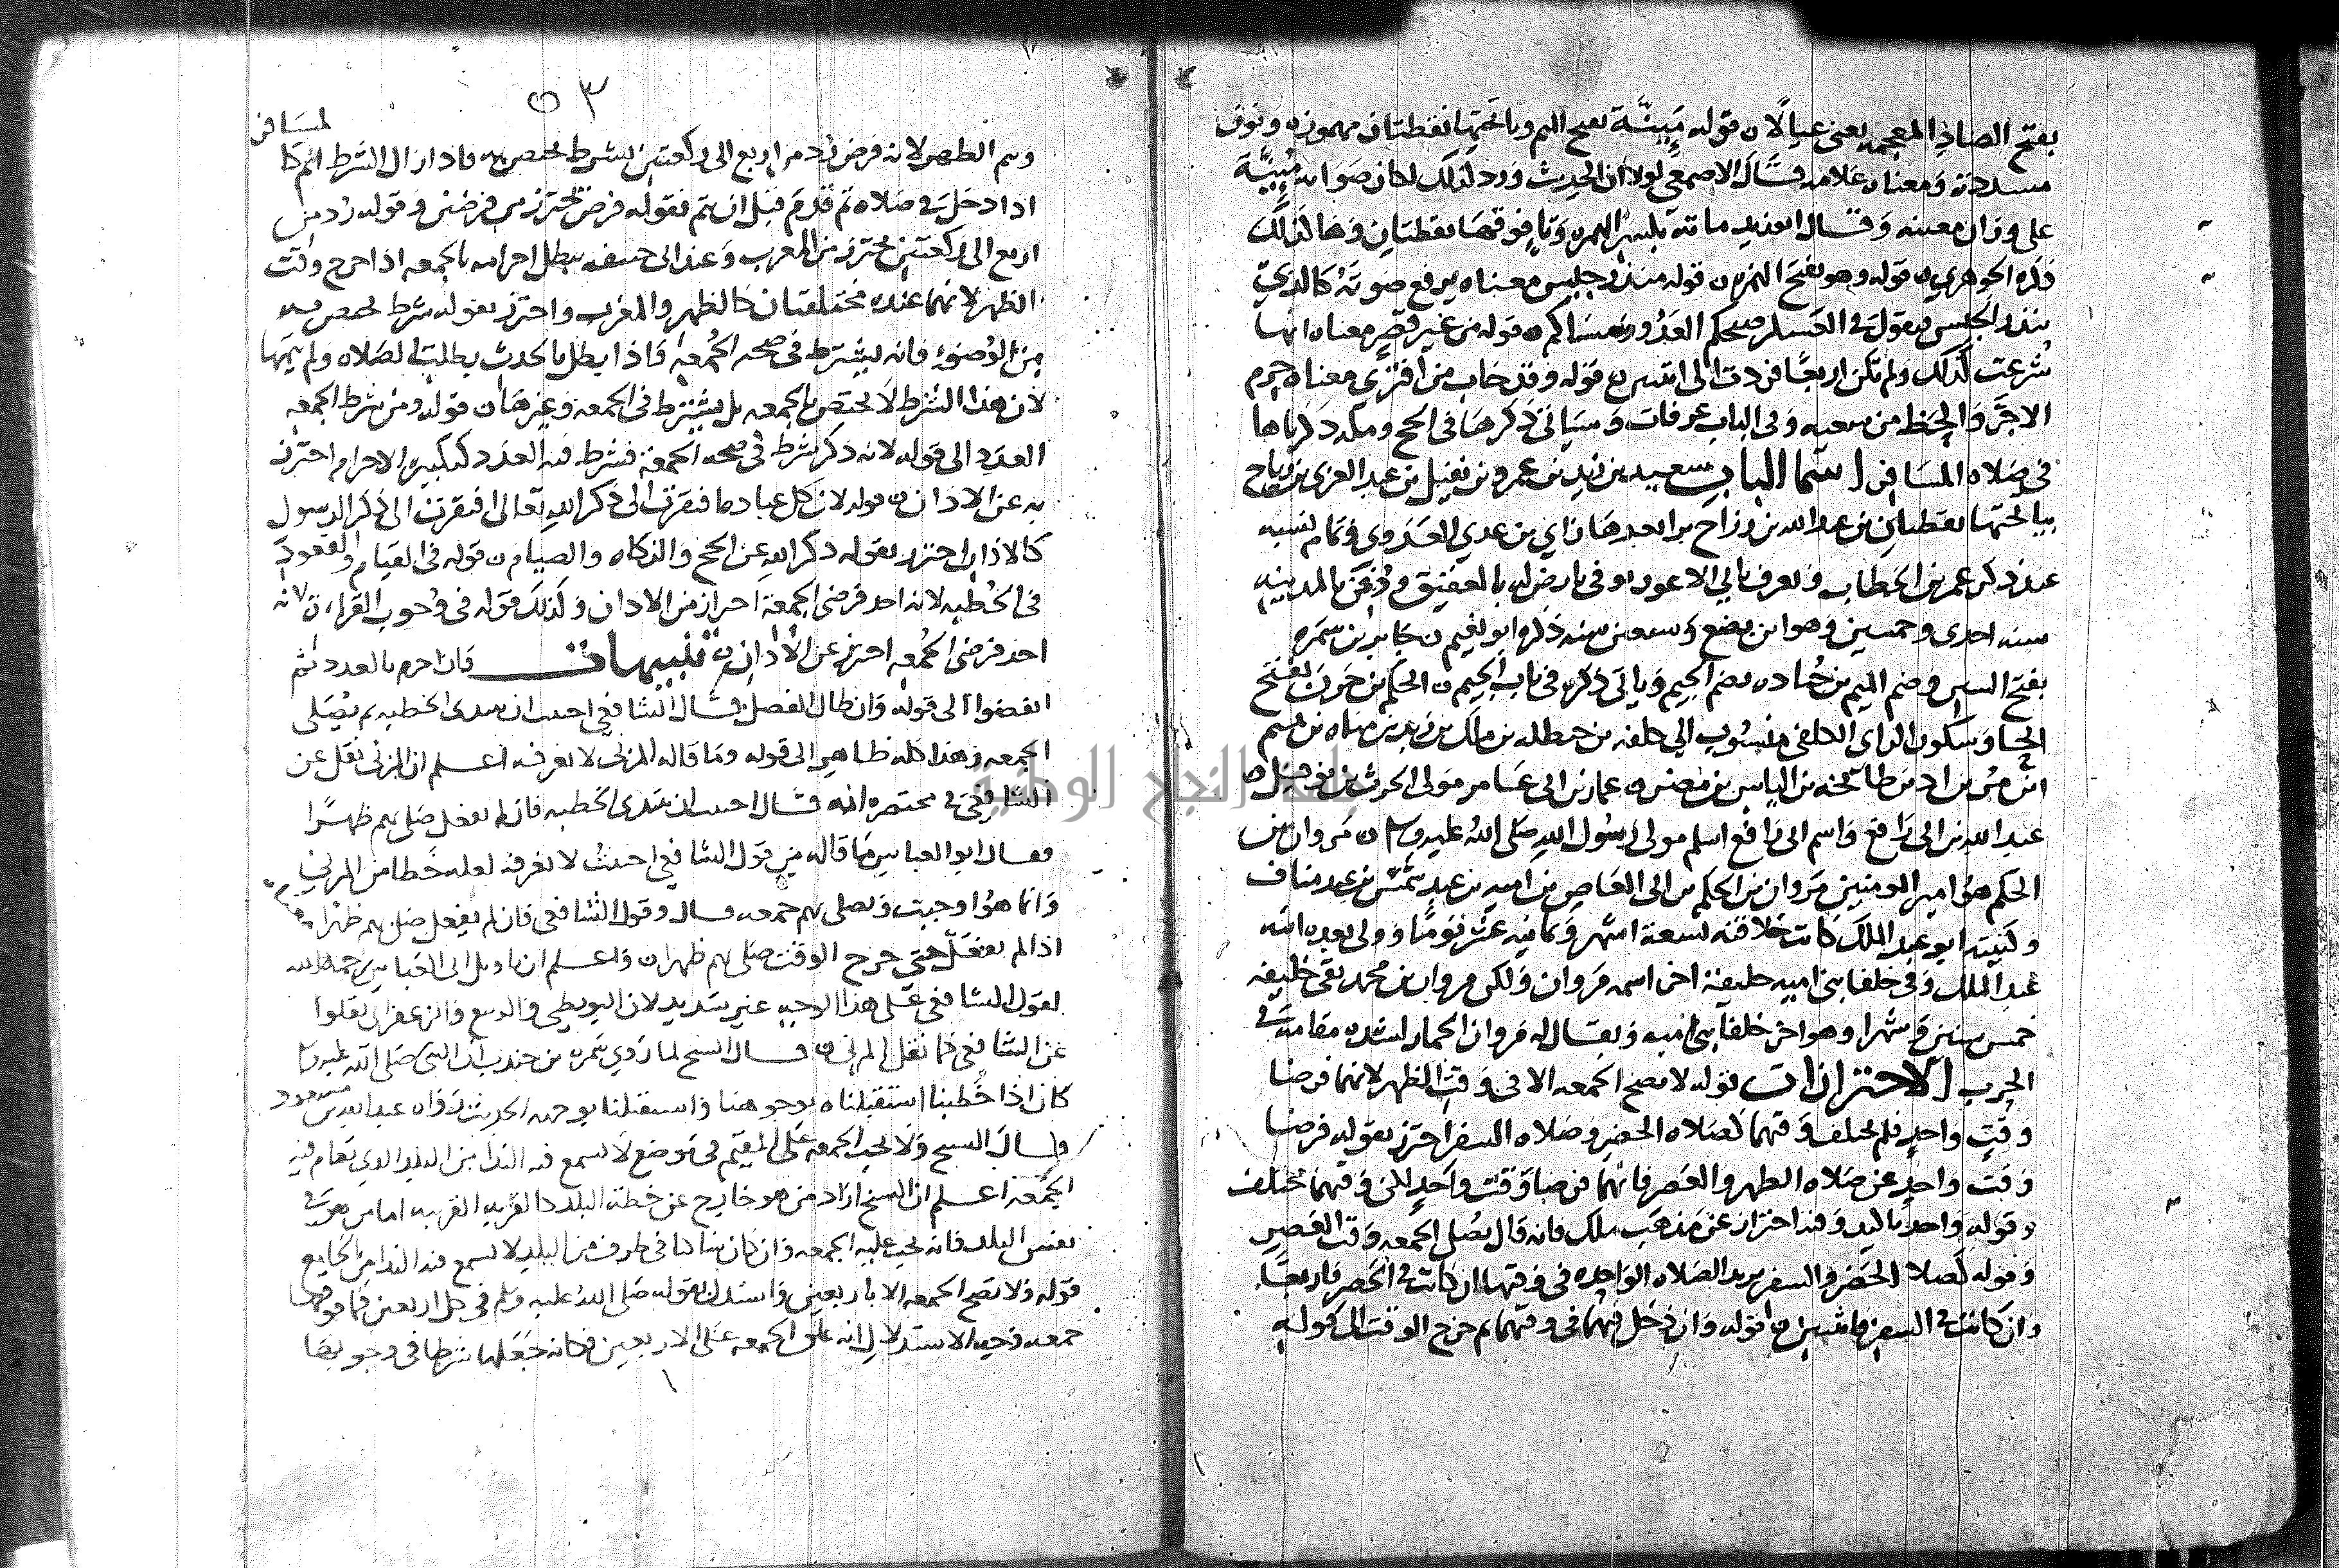 بفتح الضاد المعجمه يعني عيالا ن قوله مَئِنَّة بفتح الميم وبالحتها نقطتان مهموزه ونون
مسددة ومعناه علامه قال الاصمعي لولا ان الحديث ورد لذلك لكان صوابه مَئِيِنَّة
على وزان معينه وقال ابو زيد مأتة بكسر الهمزه وتا فوقها نقطتان وها لذلك
ذكره الجوهري ن قوله وهو بفتح الهمزه ن قوله منذر جيش معناه يرفع صوته كالذي
ينذر الجيش ويقول في العسكر صبحكم العدو ومساكم ن قوله من غير قصر معناه انها
شرعت كذلك ولم تكن اربعا فردت الى اثنتين قوله وقد خاب من افترى معناه حرم
الاجر والحظ من سعيه وفي الباب عرفات وسياتي ذكرها في الحج ومكه ذكرناها
في صلاه المسافر اسما الباب سعيد بن زيد بن عمرو بن نفيل بن عبد العزى بن رياح
بيا تحتها نقطتان بن عبد الله بن رزاح بن عدي العدوي وتمام نسبه
عند ذكر عمر بن الخطاب ويعرف بابي الاعور توفى بارض له بالعقيق ودفن بالمدينه
سنه احدى وخمسين وهو ابن بضع وسبعين سنه ذكره ابو نعيم ن جابر بن سمره
بفتح السين وضم الميم بن جناده بضم الجيم وياتي ذكره في باب الجيم ن الحكم بن حزن بفتح
الحا وسكون الزاى الكلفي منسوب الى كلفه بن حنظله بن مالك بن زيد بن مناه بن تميم
ابن مر بن اد بن طابخه بن الياس بن مضر ن عمار بن ابى عمار مولى الحرث بن نوفل ن
عبد الله بن ابى رافع واسم ابى رافع اسلم مولى رسول الله صلى الله عليه وسلم ن مروان بن
الحكم هو امير المومنين مروان بن الحكم بن ابى العاص بن اميه بن عبد شمس بن عبد مناف
وكنيته ابو عبد الملك كانت خلافته تسعة اشهر وثمانيه عشر يوما وولى بعده ابنه
عبد الملك وفي خلفا بني اميه خليفه اخر اسمه مروان ولكن مروان بن محمد بقى خليفه
خمس سنين وشهرا وهو اخر خلفا بني اميه ويقال له مروان الحمار لشده مقامه في
الحرب الاحترازات قوله لا تصح الجمعه الا في وقت الظهر لانهما فرضا
وقت واحد فلم يختلف وقتهما كصلاه الحضر وصلاه السفر احترز بقوله فرضا
وقت واحد عن صلاه الظهر والعصر فانهما فرضا وقت واحد لكن وقتهما مختلف
وقوله واحد وفيه احتراز عن مذهب ملك فانه قال يصلى الجمعه وقت العصر
وقوله كصلاه الحضر والسفر يريد الصلاه الواحده في وقتها ان كانت في الحضر فاربعا
وان كانت في السفر فاثنتين ن قوله وان دخل فيها في وقتها ثم خرج الوقت الى قوله
٥٣
وتتم الظهر لانه فرض رد من اربع الى ركعتين بشرط يختص به فاذا زال الشرط اتم كالمسافر
اذا دخل في صلاه ثم قدم قبل ان تتم فقوله فرض تحترز من فرضين وقوله رد من
اربع الى ركعتين يحترز من المغرب وعند ابى حنيفه يبطل احرامه بالجمعه اذا خرج وقت
الظهر لانهما عنده مختلفتان كالظهر والمغرب واحترز بقوله بشرط يختص به
من الوضوء فانه يشترط في صحه الجمعه فاذا بطل بالحدث بطلت الصلاه ولم يتمها
لان هذا الشرط لا يختص بالجمعه بل يشترط في الجمعه وغيرها ن قوله ومن شرط الجمعه
العدد الى قوله لانه ذكر شرط في صحه الجمعه فشرط فيه العدد كتكبيره الاحرام احترز
به عن الاذان ن قوله لان كل عباده افتقرت الى ذكر الله تعالى افتقرت الى ذكر الرسول
كالاذان احترز بقوله ذكر الله عن الحج والزكاه والصيام ن قوله في القيام والقعود
في الخطبه لانه احد فرضى الجمعه احترازا من الاذان وكذلك قوله في وجوب القراءة لانه
احد فرضى الجمعه احترز عن الاذان ن تنبيهات فان احرم بالعدد ثم
انفضوا الى قوله وان طال الفصل قال الشافعي احببت ان يبتدى الخطبه ثم يصلى
الجمعه وهذا كله ظاهر الى قوله وما قاله المزني لا نعرفه اعلم ان المزني نقل عن
الشافعي في مختصره انه قال احببت ان يبتدى الخطبه فان لم يفعل صلى بهم ظهرا
فقال ابو العباس ما قاله من قول الشافعي احببت لا نعرفه لعله خطا من المزني
وانما هو اوجبت ويصلى بهم جمعه قال وقول الشافعي فان لم يفعل صلى بهم ظهرا
اذا لم يفعل حتى خرج الوقت صلى بهم ظهرا ن واعلم ان تاويل ابى العباس رحمه الله
لقول الشافعي على هذا الوجه غير سديد لان البويطي والربيع والزعفراني نقلوا
عن الشافعي كما نقل المزني ن قال الشيخ لما روي سمره بن جندب ان النبي صلى الله عليه وسلم
كان اذا خطبنا استقبلناه بوجوهنا واستقبلنا بوجهه الحديث رواه عبد الله بن مسعود
قال الشيخ ولا تجب الجمعه على المقيم في موضع لا يسمع فيه الندا من البلد الذي تقام فيه
الجمعه اعلم ان الشيخ اراد من هو خارج عن خطة البلد كالقريه القريبه اما من هو في
نفس البلد فانه تجب عليه الجمعه وان كان ساكنا في طرف من البلد لا يسمع فيه الندا من الجامع
قوله ولا تصح الجمعه الا باربعين واستدل بقوله صلى الله عليه وسلم في كل اربعين فما فوقها
جمعه وجه الاستدلال انه علق الجمعه على الاربعين فكانه جعلها شرطا في وجوبها
جامعة النجاح الوطنية